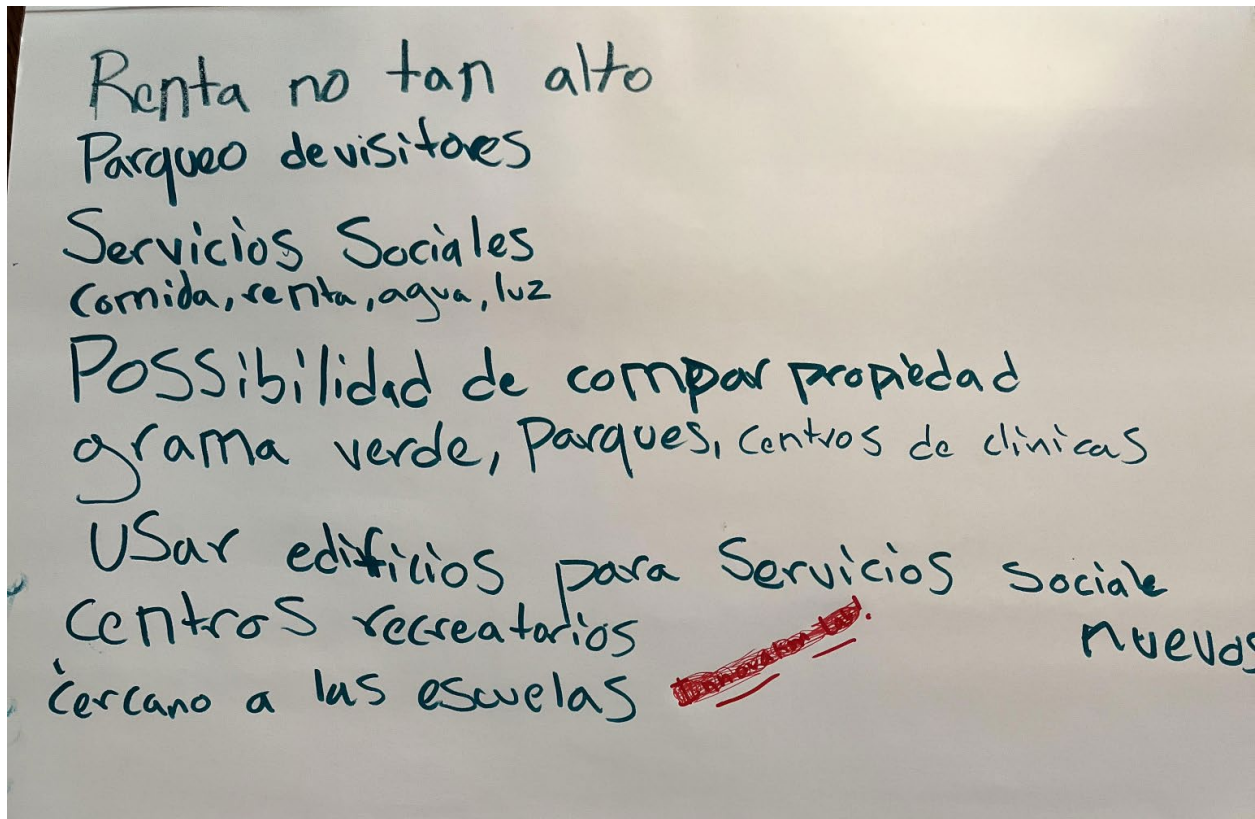 Renta no tan alto
Parqueo de visitores
Servicios Sociales
comida, renta, agua, luz
Possibilidad de compar propiedad
grama verde, Parques, centros de clinicas
Usar edificios para Servicios Sociale
nuevos
Centros recreatorios
cercano a las escuelas